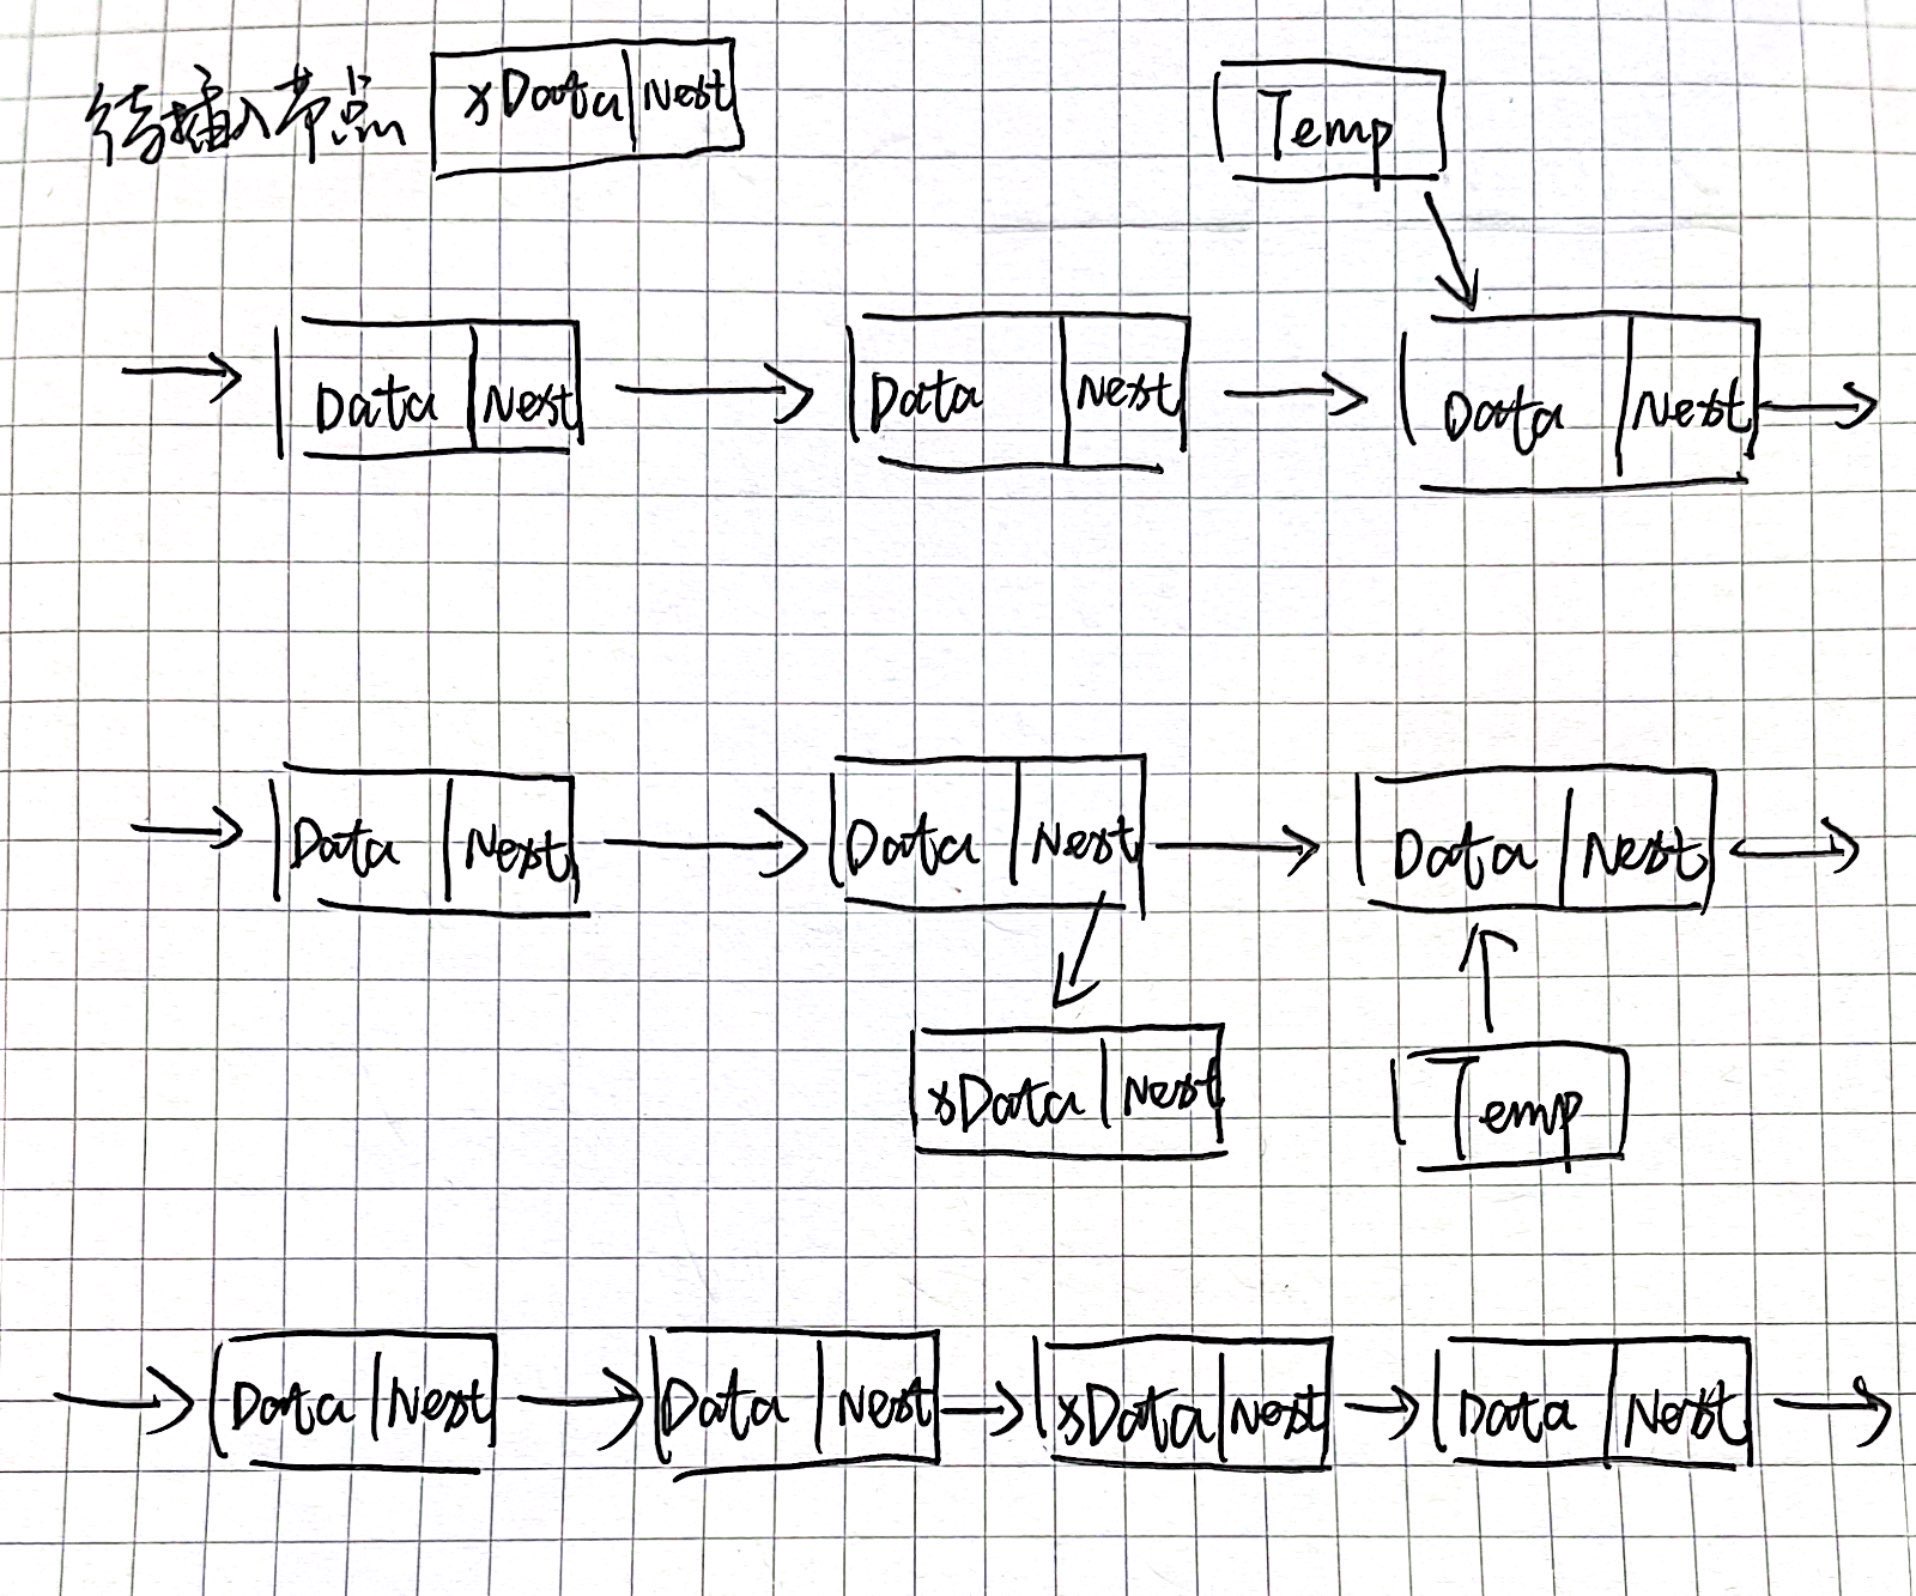 待插入节点 xData Next Temp
Data Next Data Next Data Next
Data Next Data Next Data Next
xData Next Temp
Data Next Data Next xData Next Data Next